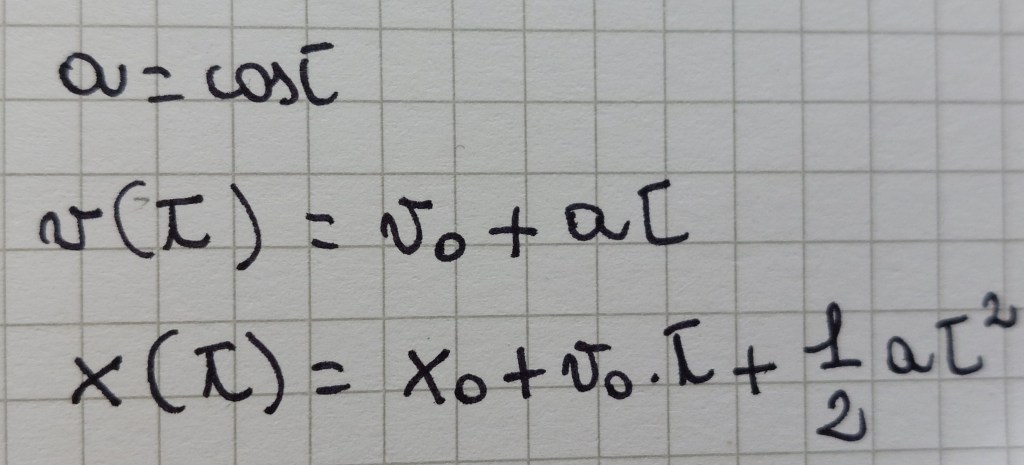 a = cost
v(t) = v₀ + at
x(t) = x₀ + v₀·t + 1/2 at²